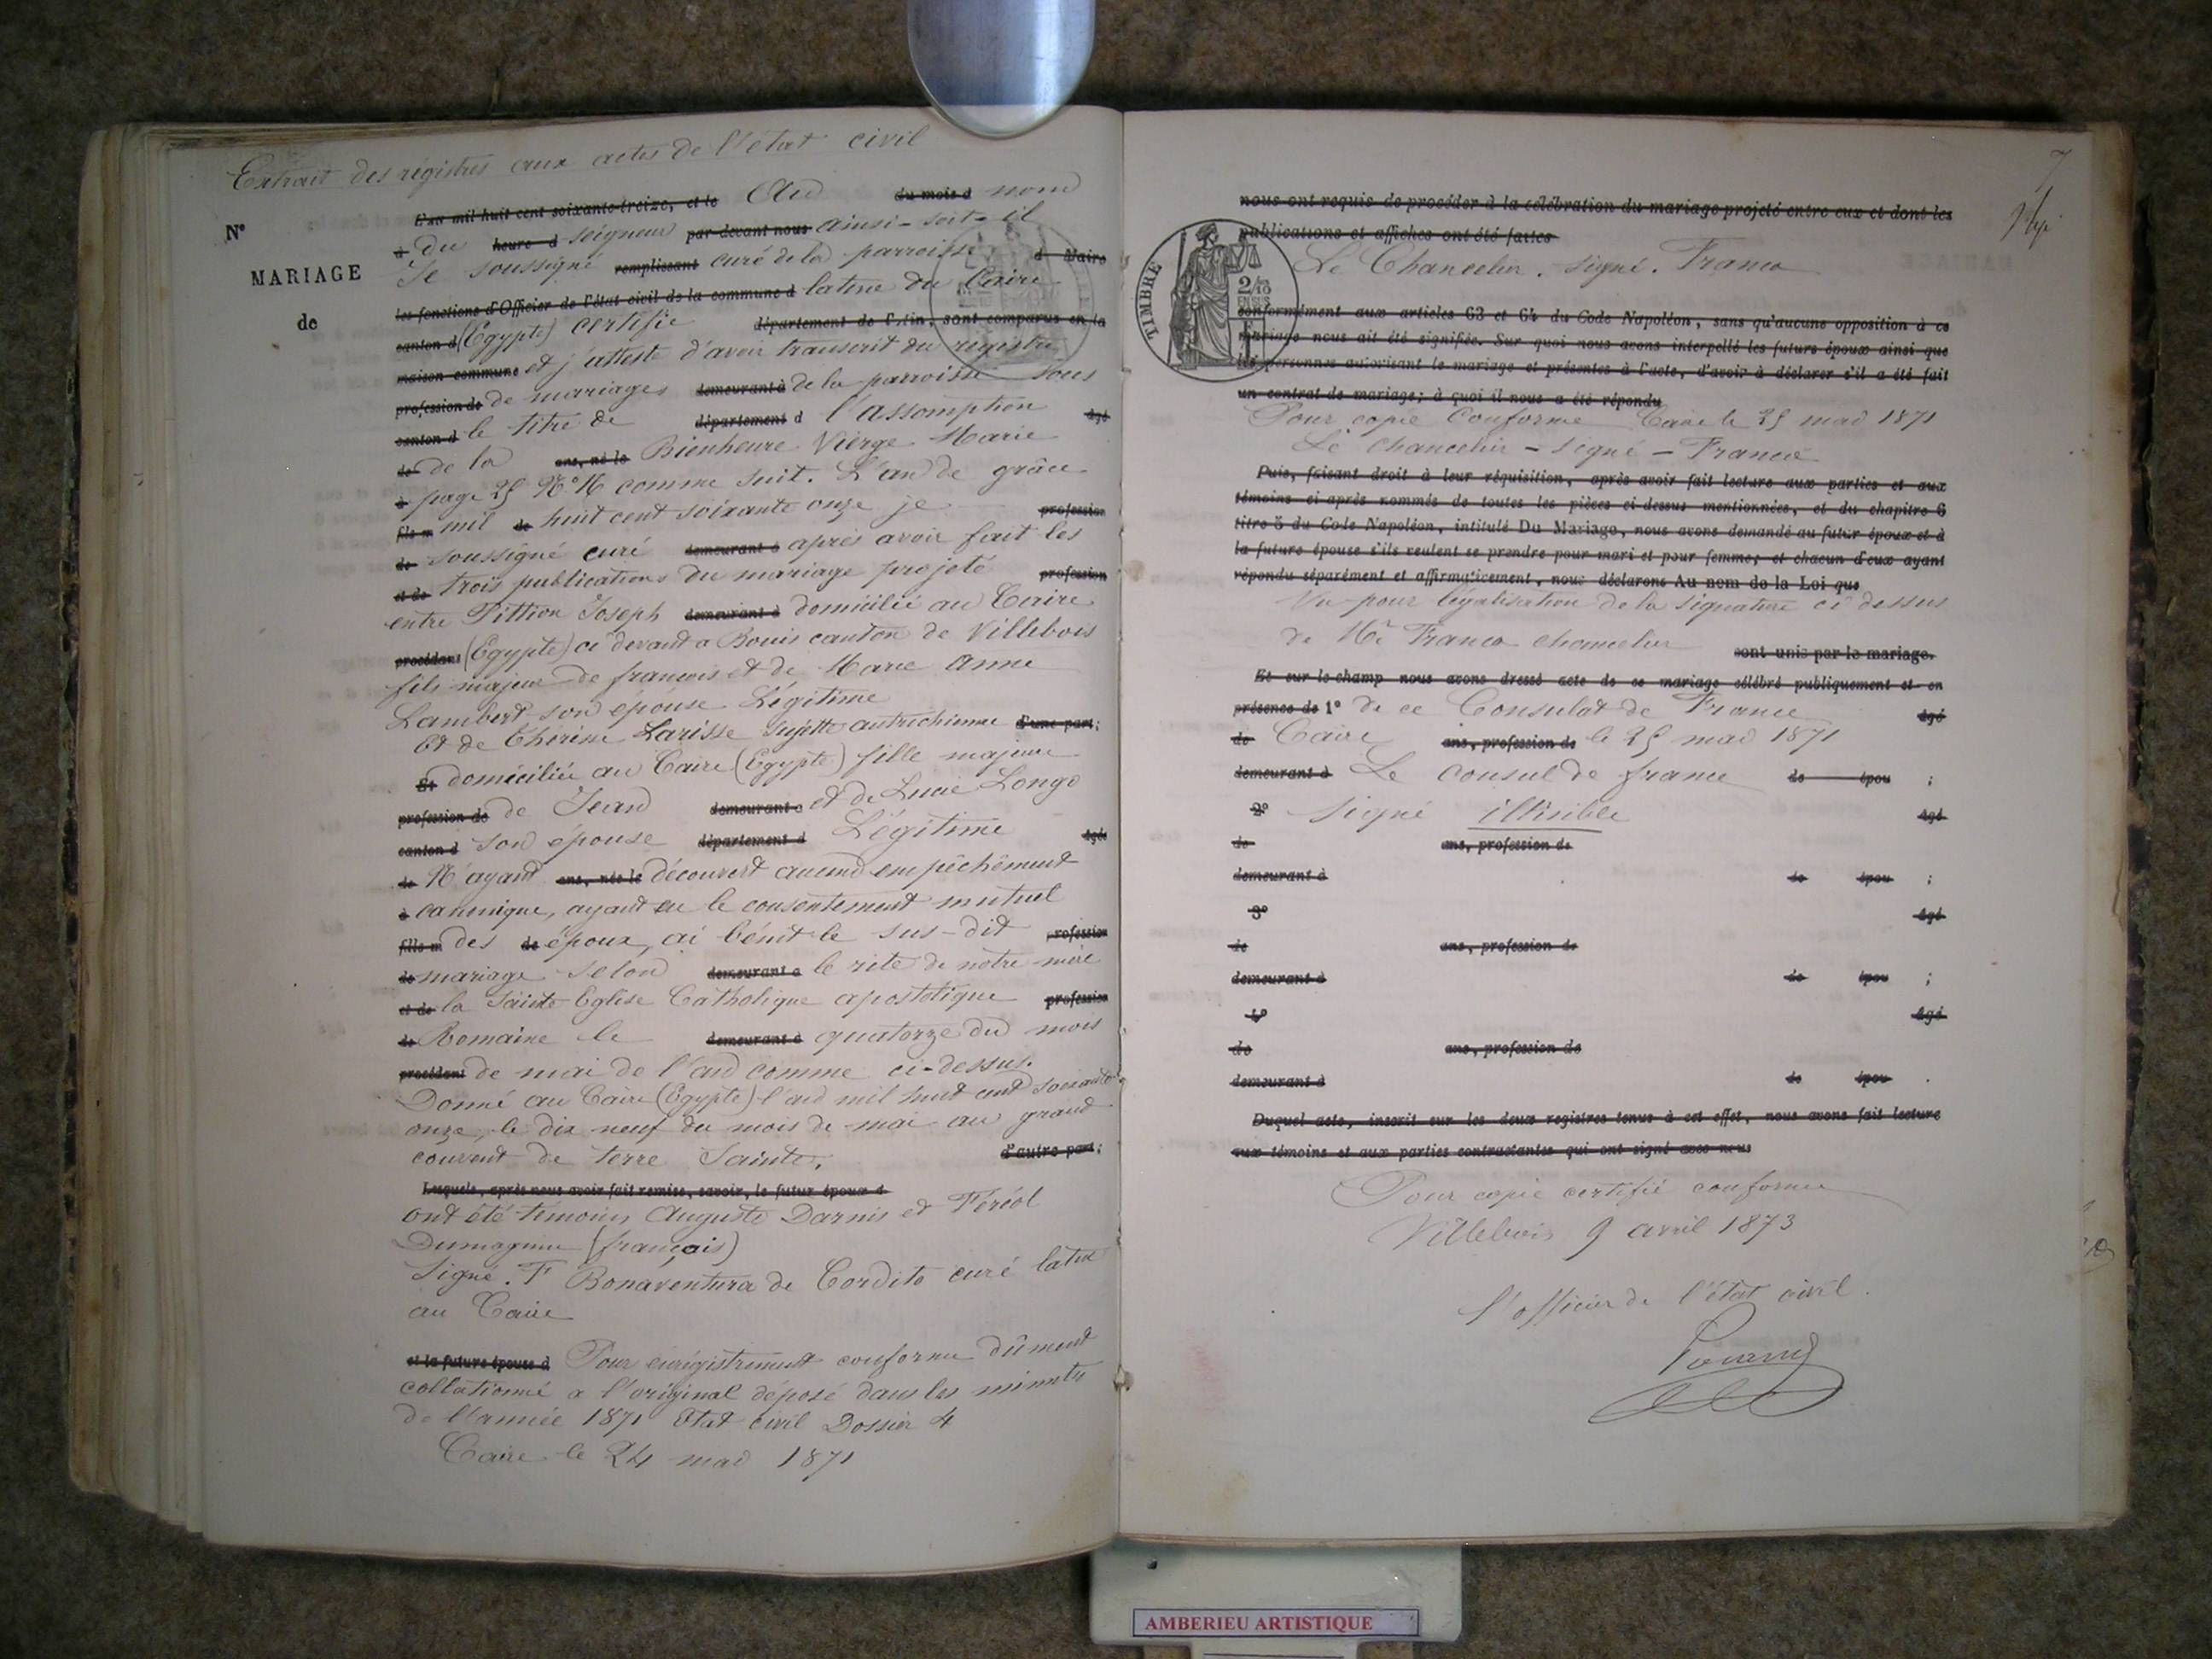 Extrait des régistres aux actes de l'état civil
N°
MARIAGE
de
L'an mil huit cent soixante-treize, et le Au du mois d nom
à du heure d seigneur par-devant nous ainsi-soit-il
Je soussigné remplissant curé de la parroisse d Maire
les fonctions d'Officier de l'état civil de la commune d latine du Caire
canton d (Egypte) certifie département de l'Ain, sont comparus en la
maison commune et j'atteste d'avoir transcrit du registre
profession de de mariages demeurant à de la parroisse sous
canton d le titre de département d l'assomption âgé
de de la ans, né le Bienheure Vierge Marie
à page 25 N° 16 comme suit. L'an de grâce
fils m mil de huit cent soixante onze je profession
de soussigné curé demeurant à après avoir fait les
et de trois publications du mariage projeté profession
entre Pittion Joseph demeurant à domicilié au Caire
procédant (Egypte) ci devant a Bouis canton de Villebois
fils majeur de françois et de Marie Anne
Lambert son épouse Légitime
Et de Chérine Larisse sujette autrichienne d'une part;
Et domiciliée au Caire (Egypte) fille majeure
profession de de Jean demeurant à et de Lucie Longo
canton d son épouse département d Légitime âgée
de N'ayant ans, née le découvert aucun empêchement
à canonique, ayant eu le consentement mutuel
fille m des de époux, ai bénit le sus-dit profession
de mariage selon demeurant à le rite de notre mère
et de la Sainte Eglise Catholique apostolique profession
de Romaine le demeurant à quatorze du mois
procédant de mai de l'an comme ci-dessus.
Donné au Caire (Egypte) l'an mil huit cent soixante
onze, le dix neuf du mois de mai au grand
couvent de terre Sainte. d'autre part;
Lesquels, après nous avoir fait remise, savoir, le futur époux d
ont été témoins Auguste Darnis et Féréol
(français)
Signé. F Bonaventura de Cordito curé latin
au Caire
et la future épouse d Pour enrégistrement conforme dûment
collationné a l'original déposé dans les minutes
de l'année 1871 Etat civil Dossier 4
Caire le 24 mai 1871
7
nous ont requis de procéder à la célébration du mariage projeté entre eux et dont les
publications et affiches ont été faites
Le Chancelier. signé. Franco
TIMBRE
2/10
EN SUS
conformément aux articles 63 et 64 du Code Napoléon, sans qu'aucune opposition à ce
mariage nous ait été signifiée. Sur quoi nous avons interpellé les futurs époux ainsi que
les personnes autorisant le mariage et présentes à l'acte, d'avoir à déclarer s'il a été fait
un contrat de mariage; à quoi il nous a été répondu
Pour copie Conforme Caire le 25 mai 1871
Le Chancelier - signé - Franco
Puis, faisant droit à leur réquisition, après avoir fait lecture aux parties et aux
témoins ci-après nommés de toutes les pièces ci-dessus mentionnées, et du chapitre 6
titre 5 du Code Napoléon, intitulé Du Mariage, nous avons demandé au futur époux et à
la future épouse s'ils veulent se prendre pour mari et pour femme; et chacun d'eux ayant
répondu séparément et affirmativement, nous déclarons Au nom de la Loi que
Vu pour légalisation de la signature ci dessus
de Mr Franco Chancelier sont unis par le mariage.
Et sur-le-champ nous avons dressé acte de ce mariage célébré publiquement et en
présence de 1° de ce Consulat de France âgé
de Caire ans, profession de le 25 mai 1871
demeurant à Le Consul de france de épou ;
2° signé illisible âgé
de ans, profession de
demeurant à de épou ;
3° âgé
de ans, profession de
demeurant à de épou ;
4° âgé
de ans, profession de
demeurant à de épou .
Duquel acte, inscrit sur les deux registres tenus à cet effet, nous avons fait lecture
aux témoins et aux parties contractantes qui ont signé avec nous
Pour copie certifié conforme
Villebois 9 avril 1873
l'officier de l'état civil.
AMBERIEU ARTISTIQUE